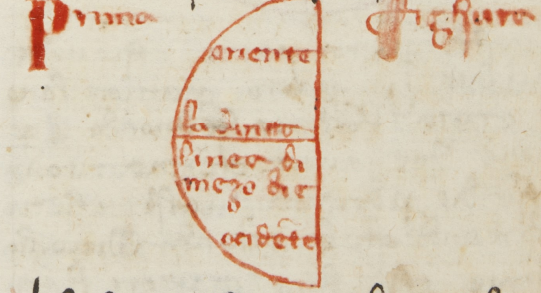 Prima fighura
oriente
la diritta
linea di
mezo die
ocidēte